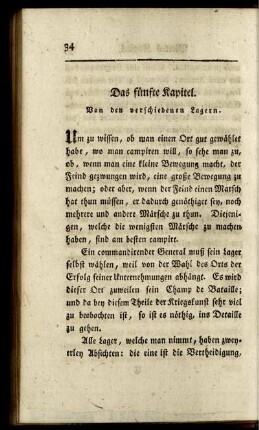 34
Das fünfte Kapitel.
Von den verschiedenen Lagern.
Um zu wissen, ob man einen Ort gut gewählet
habe, wo man campiren will, so sehe man zu,
ob, wenn man eine kleine Bewegung macht, der
Feind gezwungen wird, eine große Bewegung zu
machen; oder aber, wenn der Feind einen Marsch
hat thun müssen, er dadurch genöthiget sey, noch
mehrere und andere Märsche zu thun. Diejeni-
gen, welche die wenigsten Märsche zu machen
haben, sind am besten campirt.
Ein commandirender General muß sein Lager
selbst wählen, weil von der Wahl des Orts der
Erfolg seiner Unternehmungen abhängt. Es wird
dieser Ort zuweilen sein Champ de Bataille;
und da bey diesem Theile der Kriegskunst sehr viel
zu beobachten ist, so ist es nöthig, ins Detaille
zu gehen.
Alle Lager, welche man nimmt, haben zwey-
erley Absichten: die eine ist die Vertheidigung,